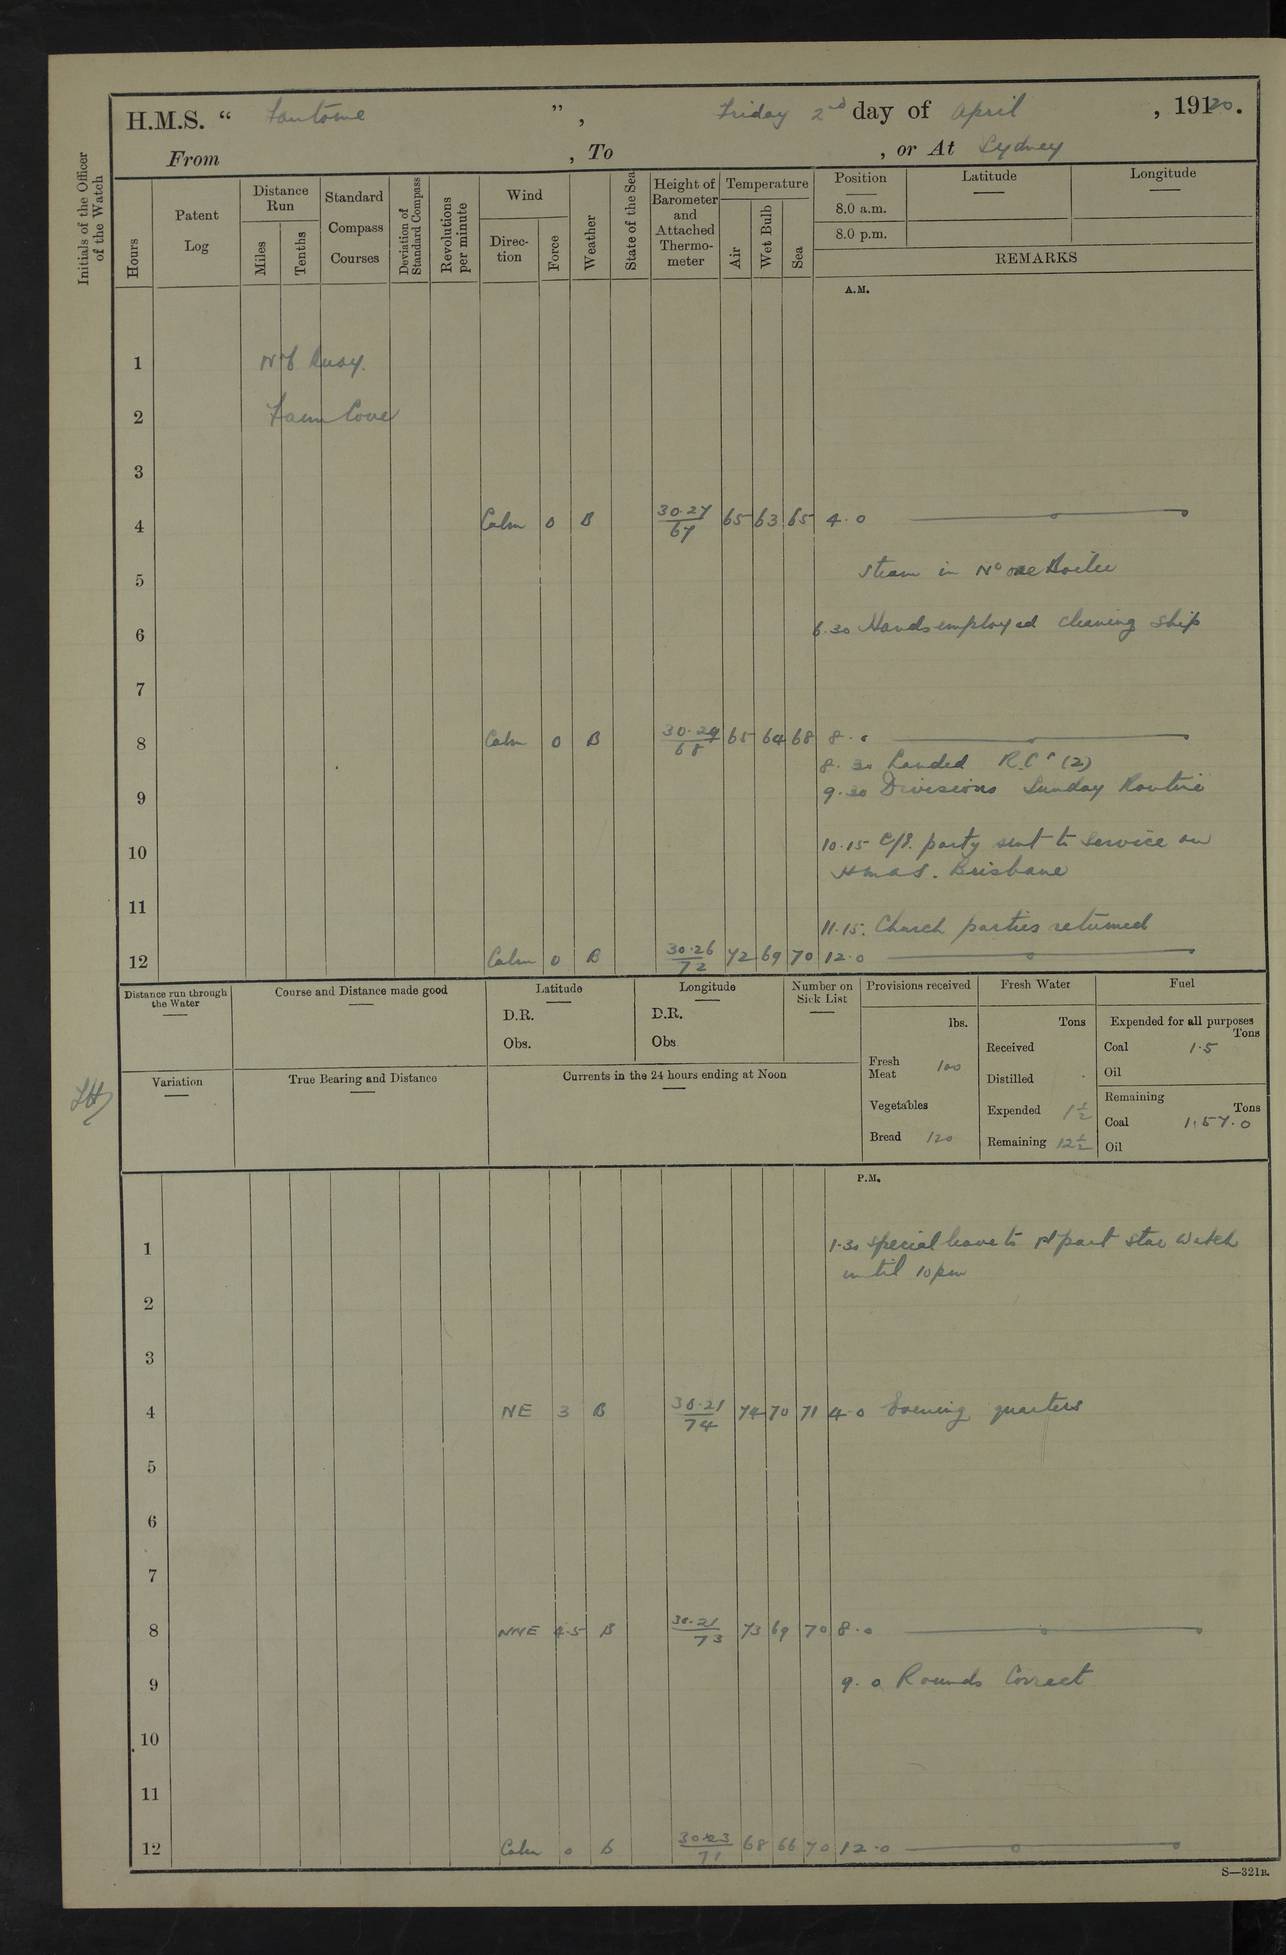 H.M.S. “ Fantome ”, Friday 2nd day of April , 19120.
From , To , or At Sydney
Initials of the Officer of the Watch
Hours
Patent Log
Distance Run
Miles
Tenths
Standard Compass Courses
Deviation of Standard Compass
Revolutions per minute
Wind
Direc-tion
Force
Weather
State of the Sea
Height of Barometer and Attached Thermo-meter
Temperature
Air
Wet Bulb
Sea
Position
8.0 a.m.
8.0 p.m.
Latitude
Longitude
REMARKS
A.M.
1 Quay.
2 Farm Cove
3
4 Calm 0 B 30.27/67 65 63 65 4.0
5 Steam in No one Boiler
6 6.30 Hands employed cleaning ship
7
8 Calm 0 B 30.29/68 65 64 68 8.0
8.30 Landed R.C's (2)
9 9.30 Divisions Sunday Routine
10 10.15 C/E. party sent to Service on
HMAS. Brisbane
11 11.15. Church parties returned
12 Calm 0 B 30.26/72 72 69 70 12.0
Distance run through the Water
Course and Distance made good
Latitude
D.R.
Obs.
Longitude
D.R.
Obs
Number on Sick List
Provisions received
lbs.
Fresh Meat 100
Vegetables
Bread 120
Fresh Water
Tons
Received
Distilled
Expended 1½
Remaining 12½
Fuel
Expended for all purposes
Tons
Coal 1.5
Oil
Remaining
Tons
Coal 157.0
Oil
Variation
True Bearing and Distance
Currents in the 24 hours ending at Noon
P.M.
1 1.30 Special leave to 1st part star Watch
until 10pm
2
3
4 NE 3 B 30.21/74 74 70 71 4.0 Evening quarters
5
6
7
8 NNE 4.5 B 30.21/73 73 69 70 8.0
9 9.0 Rounds Correct
10
11
12 Calm 0 b 30.23/71 68 66 70 12.0
S—321B.